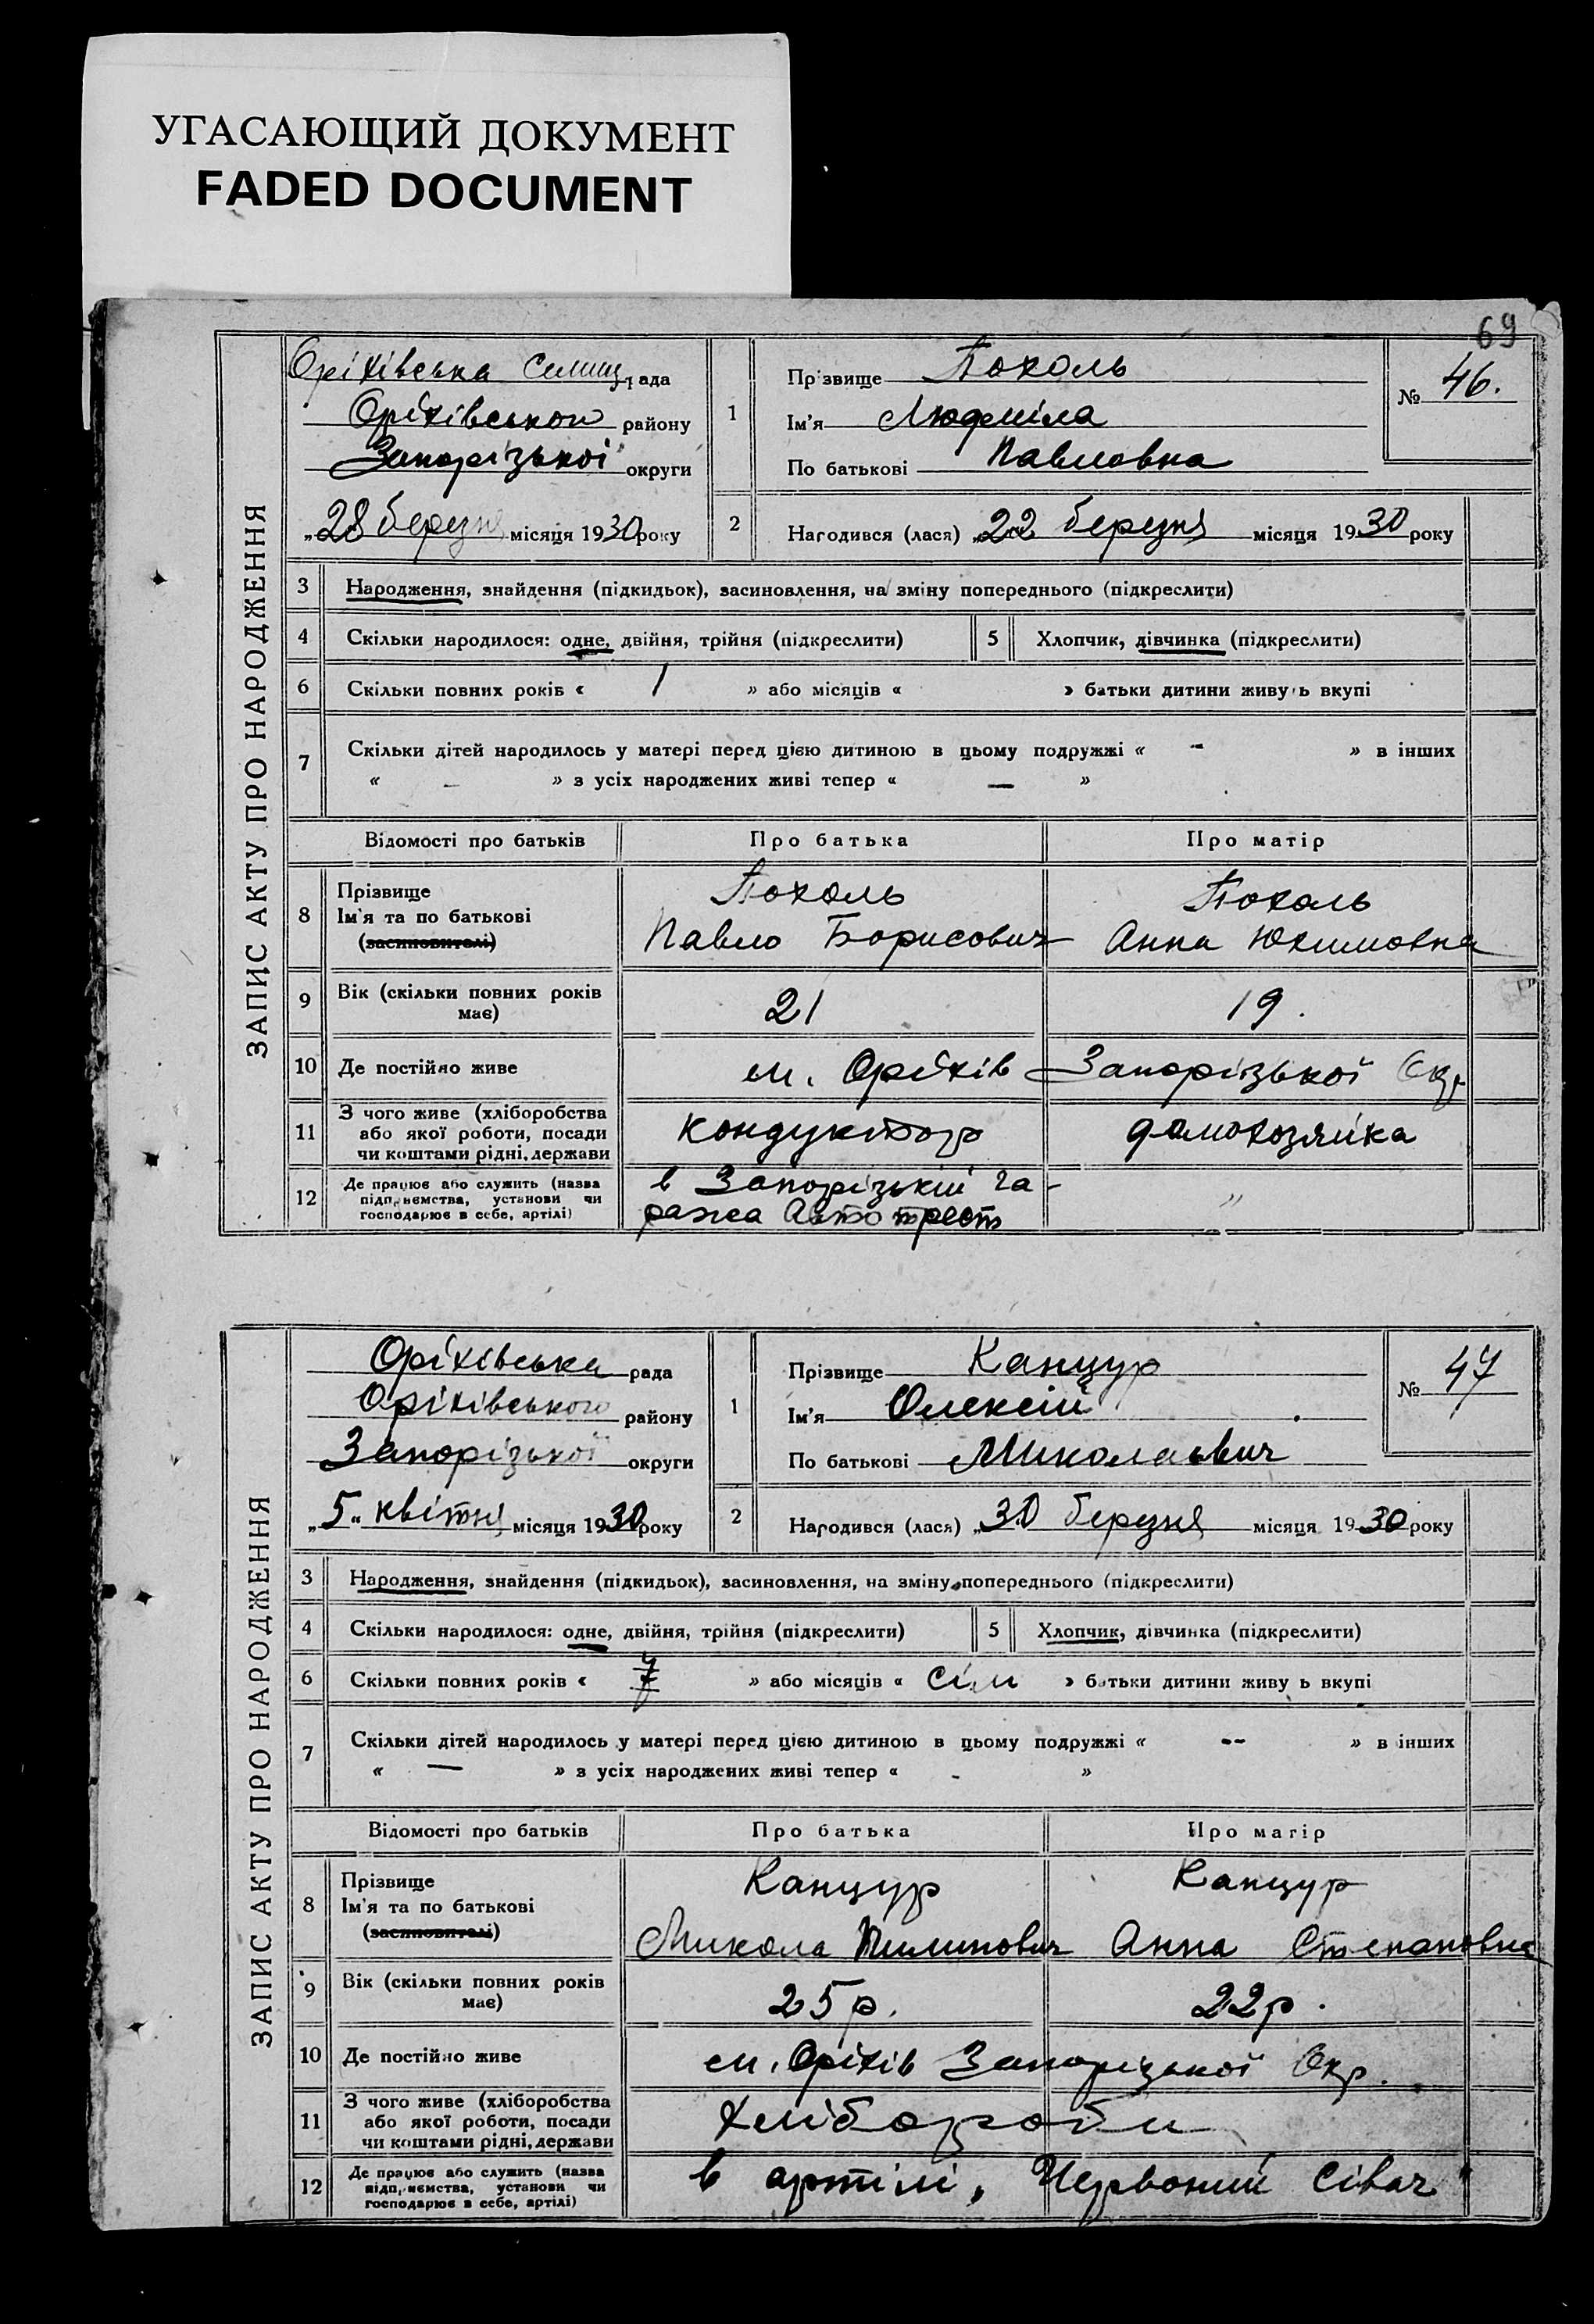 УГАСАЮЩИЙ ДОКУМЕНТ
FADED DOCUMENT
69
ЗАПИС АКТУ ПРО НАРОДЖЕННЯ
Оріхівська Селищ рада
Оріхівського району
Запорізької округи
„28 березня місяця 1930 року
1 Прізвище Похоль
Ім'я Людміла
По батькові Павловна
№ 46.
2 Народився (лася) „22 березня місяця 1930 року
3 Народження, знайдення (підкидьок), засиновлення, на зміну попереднього (підкреслити)
4 Скільки народилося: одне, двійня, трійня (підкреслити) 5 Хлопчик, дівчинка (підкреслити)
6 Скільки повних років « 1 » або місяців « » батьки дитини живуть вкупі
7 Скільки дітей народилось у матері перед цією дитиною в цьому подружжі « - » в інших
« — » з усіх народжених живі тепер « — »
Відомості про батьків Про батька Про матір
8 Прізвище
Ім'я та по батькові
(засиновителі)
Похоль
Павло Борисович
Похоль
Анна Юхимовна
9 Вік (скільки повних років
має)
21 19.
10 Де постійно живе м. Оріхів Запорізької Окр
11 З чого живе (хліборобства
або якої роботи, посади
чи коштами рідні, держави
кондуктор домохозяйка
12 Де працює або служить (назва
підприємства, установи чи
господарює в себе, артілі)
в Запорізькій га-
ража Автотрест
"
ЗАПИС АКТУ ПРО НАРОДЖЕННЯ
Оріхівська рада
Оріхівського району
Запорізької округи
„5" квітня місяця 1930 року
1 Прізвище Канцур
Ім'я Олексій
По батькові Миколаевич
№ 47
2 Народився (лася) „30 березня місяця 1930 року
3 Народження, знайдення (підкидьок), засиновлення, на зміну попереднього (підкреслити)
4 Скільки народилося: одне, двійня, трійня (підкреслити) 5 Хлопчик, дівчинка (підкреслити)
6 Скільки повних років « 7 » або місяців « сім » батьки дитини живу ь вкупі
7 Скільки дітей народилось у матері перед цією дитиною в цьому подружжі « -- » в інших
« — » з усіх народжених живі тепер « - »
Відомості про батьків Про батька Про матір
8 Прізвище
Ім'я та по батькові
(засиновителі)
Канцур
Микола Пилипович
Канцур
Анна Степановна
9 Вік (скільки повних років
має)
25 р. 22 р.
10 Де постійно живе м. Оріхів Запорізької Окр.
11 З чого живе (хліборобства
або якої роботи, посади
чи коштами рідні, держави
хлібороби
12 Де працює або служить (назва
підприємства, установи чи
господарює в себе, артілі)
в артілі „Червоний Сівач"